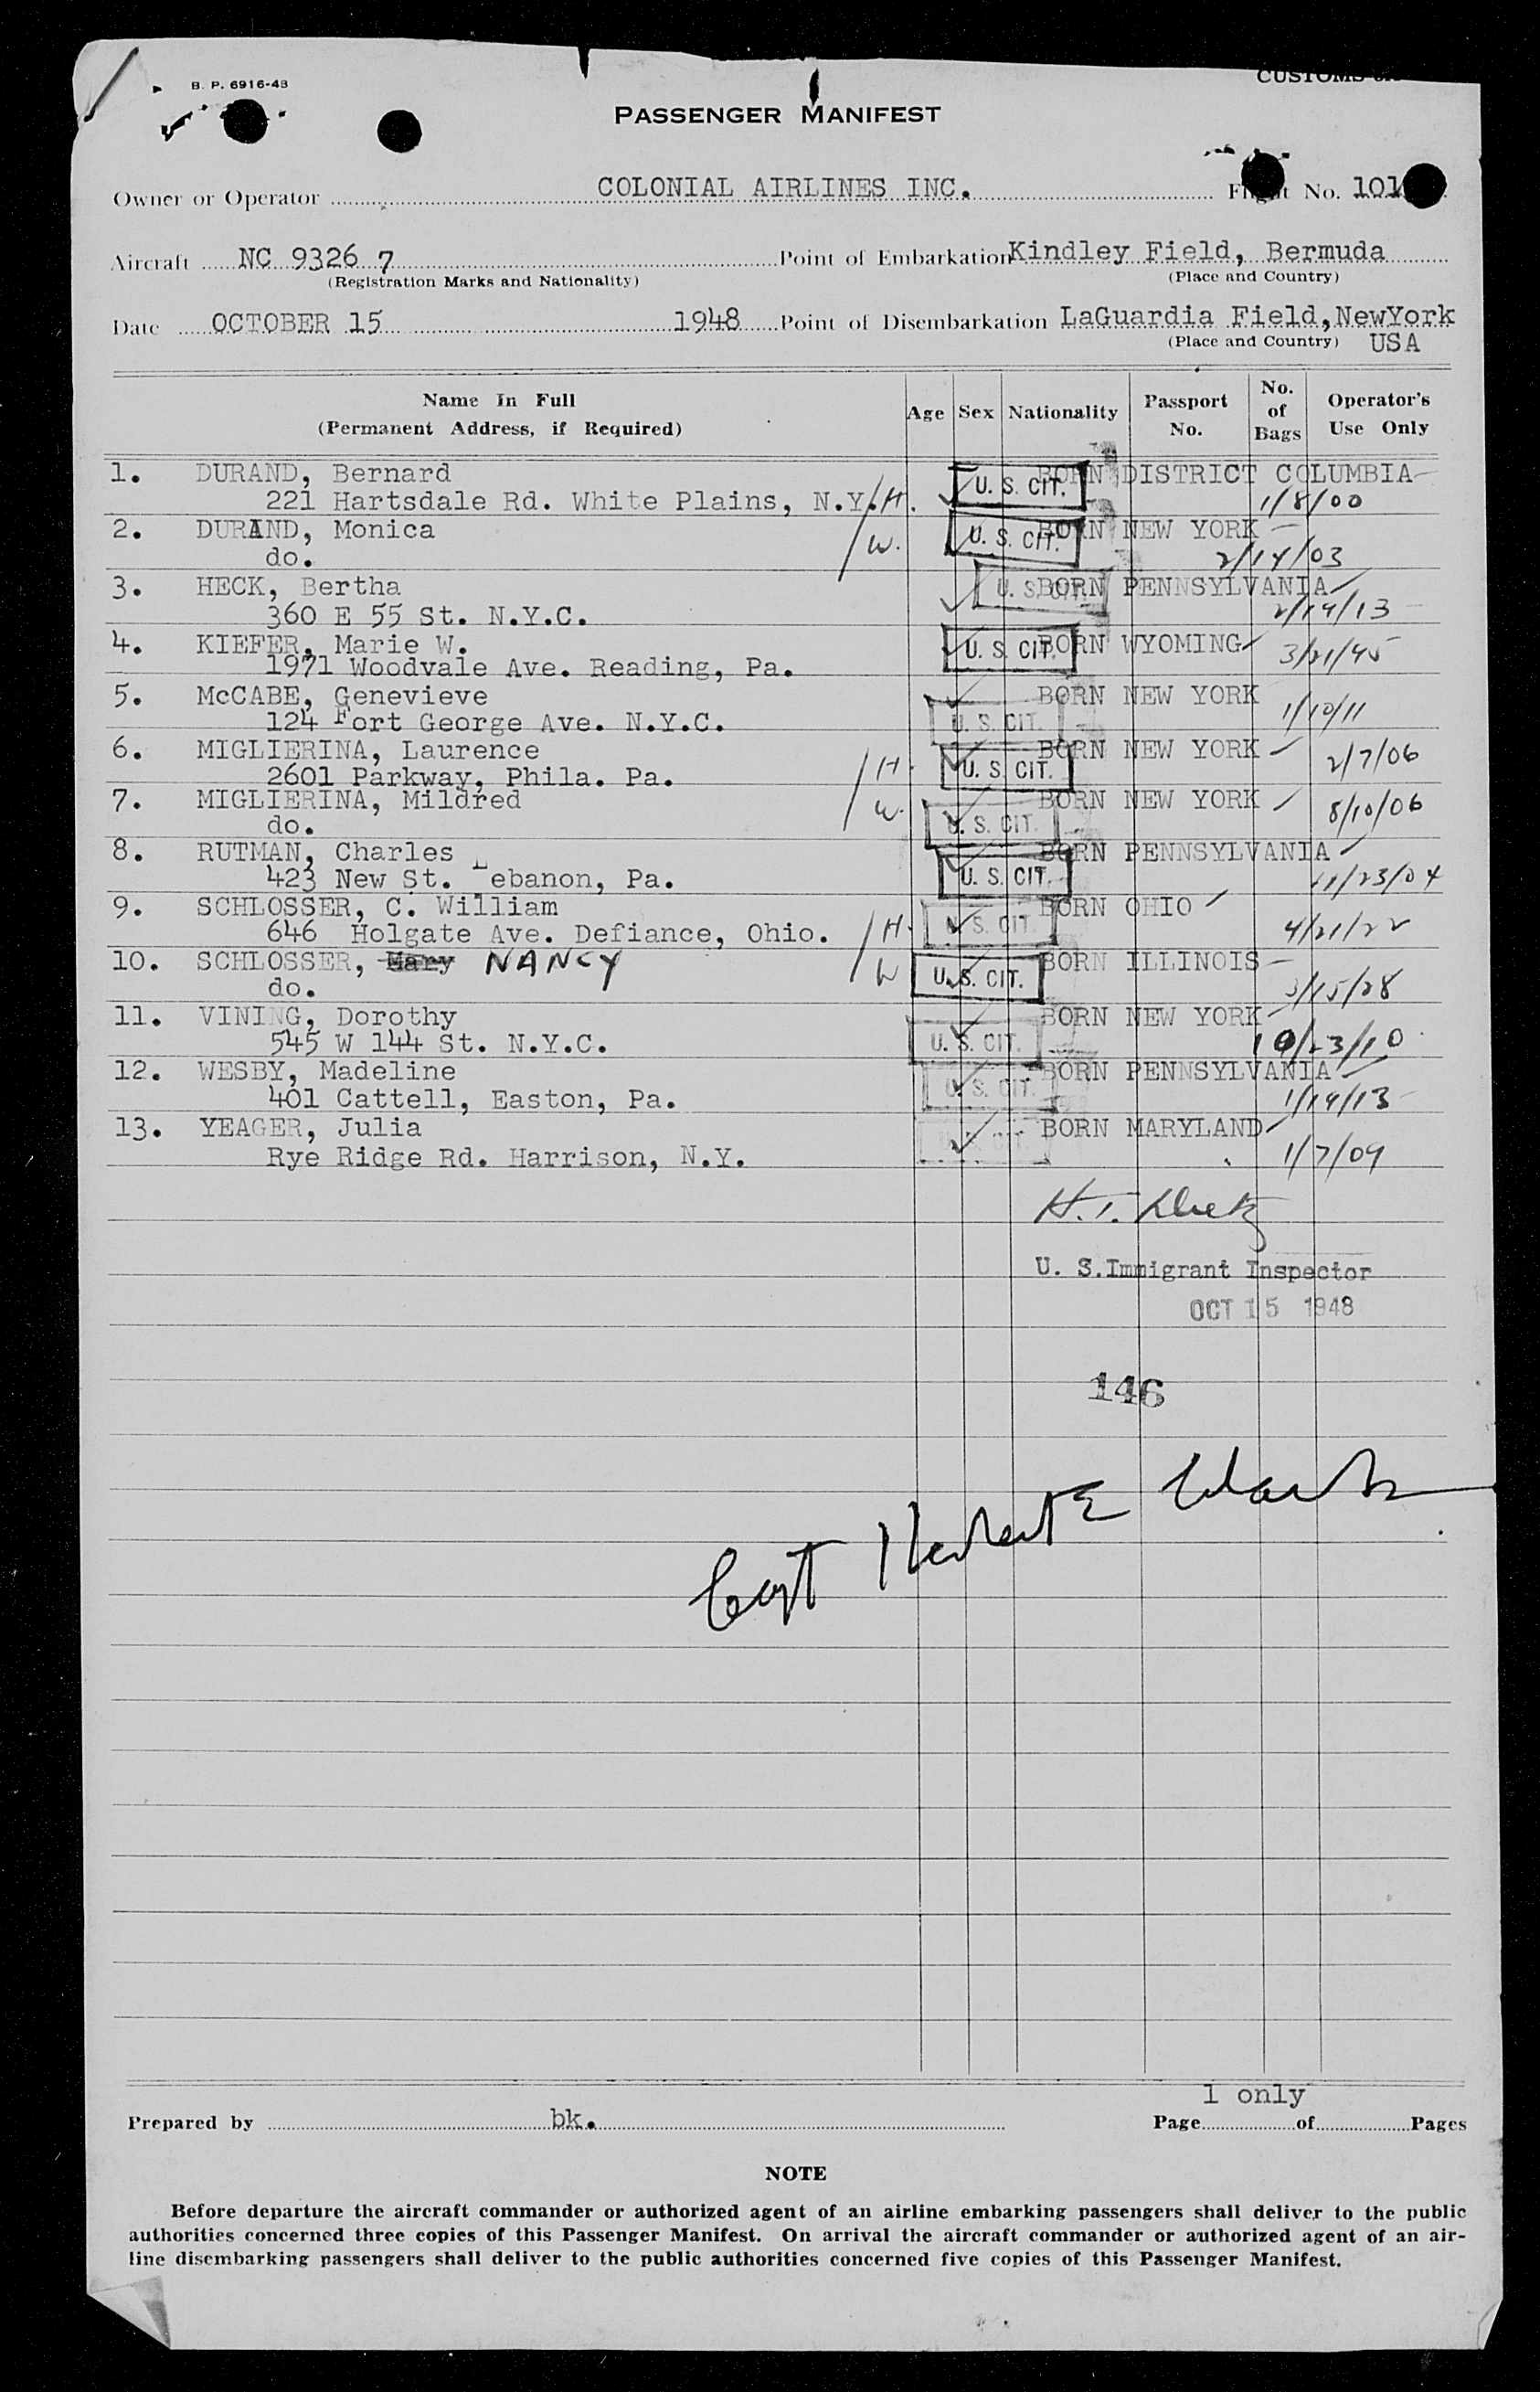 B. P. 6916-43
CUSTOMS
PASSENGER MANIFEST
Owner or Operator COLONIAL AIRLINES INC. Flight No. 101
Aircraft NC 9326 7 Point of Embarkation Kindley Field, Bermuda
(Registration Marks and Nationality) (Place and Country)
Date OCTOBER 15 1948 Point of Disembarkation LaGuardia Field, NewYork
(Place and Country) USA
Name In Full
(Permanent Address, if Required) Age Sex Nationality Passport No. No. of Bags Operator's Use Only
1. DURAND, Bernard U. S. CIT. BORN DISTRICT COLUMBIA
221 Hartsdale Rd. White Plains, N.Y. H. 1/8/00
2. DURAND, Monica U. S. CIT. BORN NEW YORK
do. W. 2/14/03
3. HECK, Bertha U. S. CIT. BORN PENNSYLVANIA
360 E 55 St. N.Y.C. 2/14/13
4. KIEFER, Marie W. U. S. CIT. BORN WYOMING
1971 Woodvale Ave. Reading, Pa. 3/21/
5. McCABE, Genevieve BORN NEW YORK
124 Fort George Ave. N.Y.C. U. S. CIT. 1/10/11
6. MIGLIERINA, Laurence BORN NEW YORK
2601 Parkway, Phila. Pa. H. U. S. CIT. 2/7/06
7. MIGLIERINA, Mildred BORN NEW YORK
do. W. U. S. CIT. 8/10/06
8. RUTMAN, Charles BORN PENNSYLVANIA
423 New St. Lebanon, Pa. U. S. CIT. 11/23/04
9. SCHLOSSER, C. William BORN OHIO
646 Holgate Ave. Defiance, Ohio. H. U. S. CIT. 4/21/22
10. SCHLOSSER, Mary NANCY BORN ILLINOIS
do. W U. S. CIT. 3/15/28
11. VINING, Dorothy BORN NEW YORK
545 W 144 St. N.Y.C. U. S. CIT. 10/23/10
12. WESBY, Madeline BORN PENNSYLVANIA
401 Cattell, Easton, Pa. U. S. CIT. 1/19/13
13. YEAGER, Julia BORN MARYLAND
Rye Ridge Rd. Harrison, N.Y. 1/7/09
H. T.
U. S. Immigrant Inspector
OCT 15 1948
146
Capt
1 only
Prepared by bk. Page of Pages
NOTE
Before departure the aircraft commander or authorized agent of an airline embarking passengers shall deliver to the public
authorities concerned three copies of this Passenger Manifest. On arrival the aircraft commander or authorized agent of an air-
line disembarking passengers shall deliver to the public authorities concerned five copies of this Passenger Manifest.